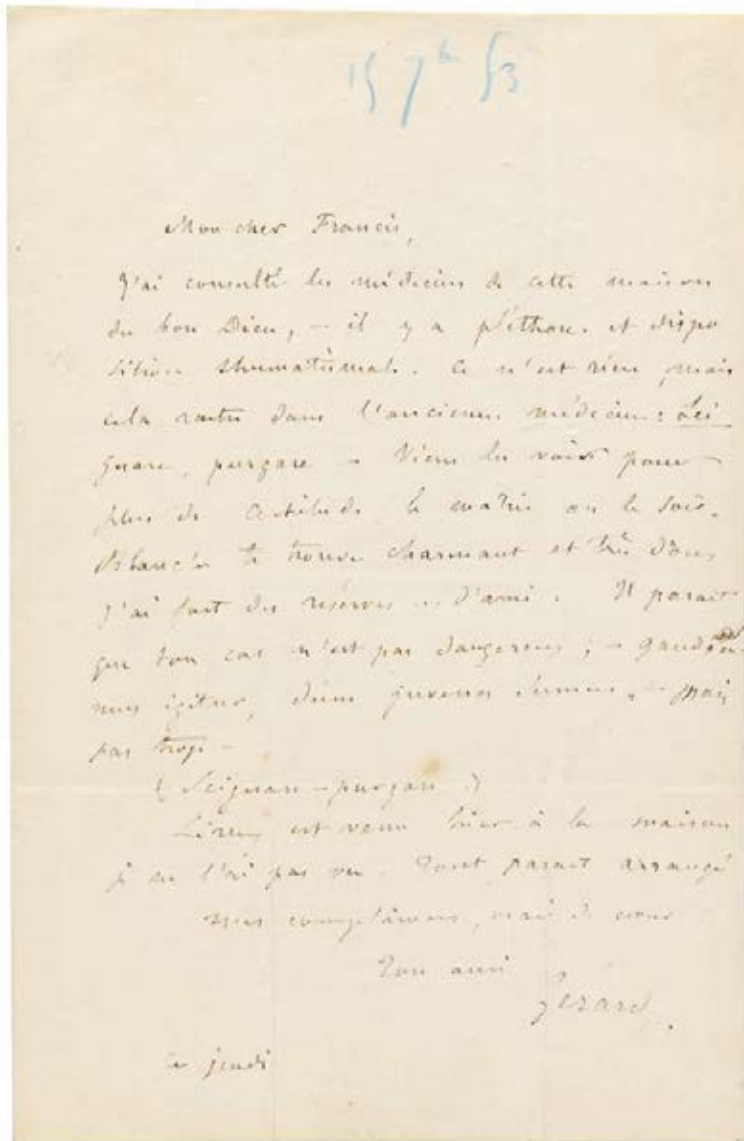 15 7bre 53
Mon cher Francis,
J'ai consulté les médecins de cette maison
du bon Dieu, – il y a pléthore et dispo
sition rhumatismale. Ce n'est rien, mais
cela rentre dans l'ancienne médecine:
gnare, purgare – Viens les voir pour
plus de certitude le matin ou le soir.
Blanche te trouve charmant et très doux
J'ai fait des réserves ... d'ami. Il paraît
que ton cas n'est pas dangereux; – gaudea
mus igitur, dum juvenes sumus. – Mais
pas trop –
(Seignare – purgare.)
est venu hier à la maison
je ne l'ai pas vu. Tout paraît arrangé
de cœur
Ton ami
Gérard.
ce jeudi